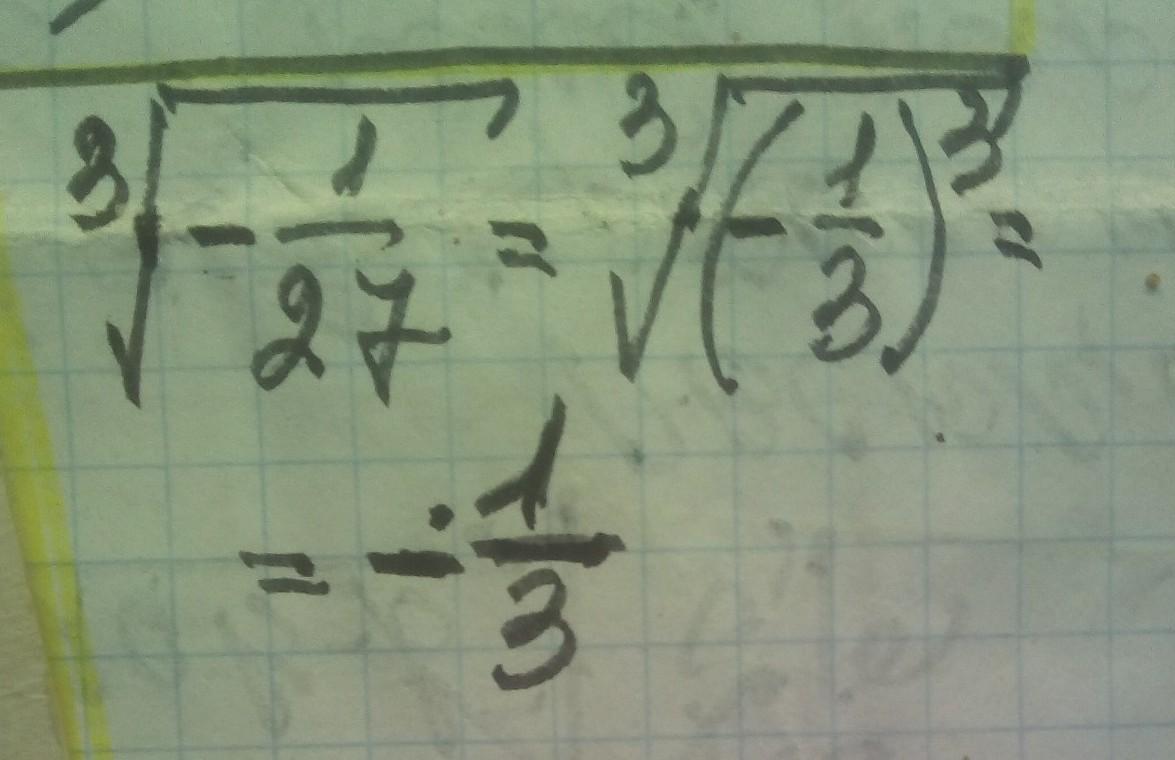 ∛(-1/27) = ∛((-1/3)^3) =
= -1/3